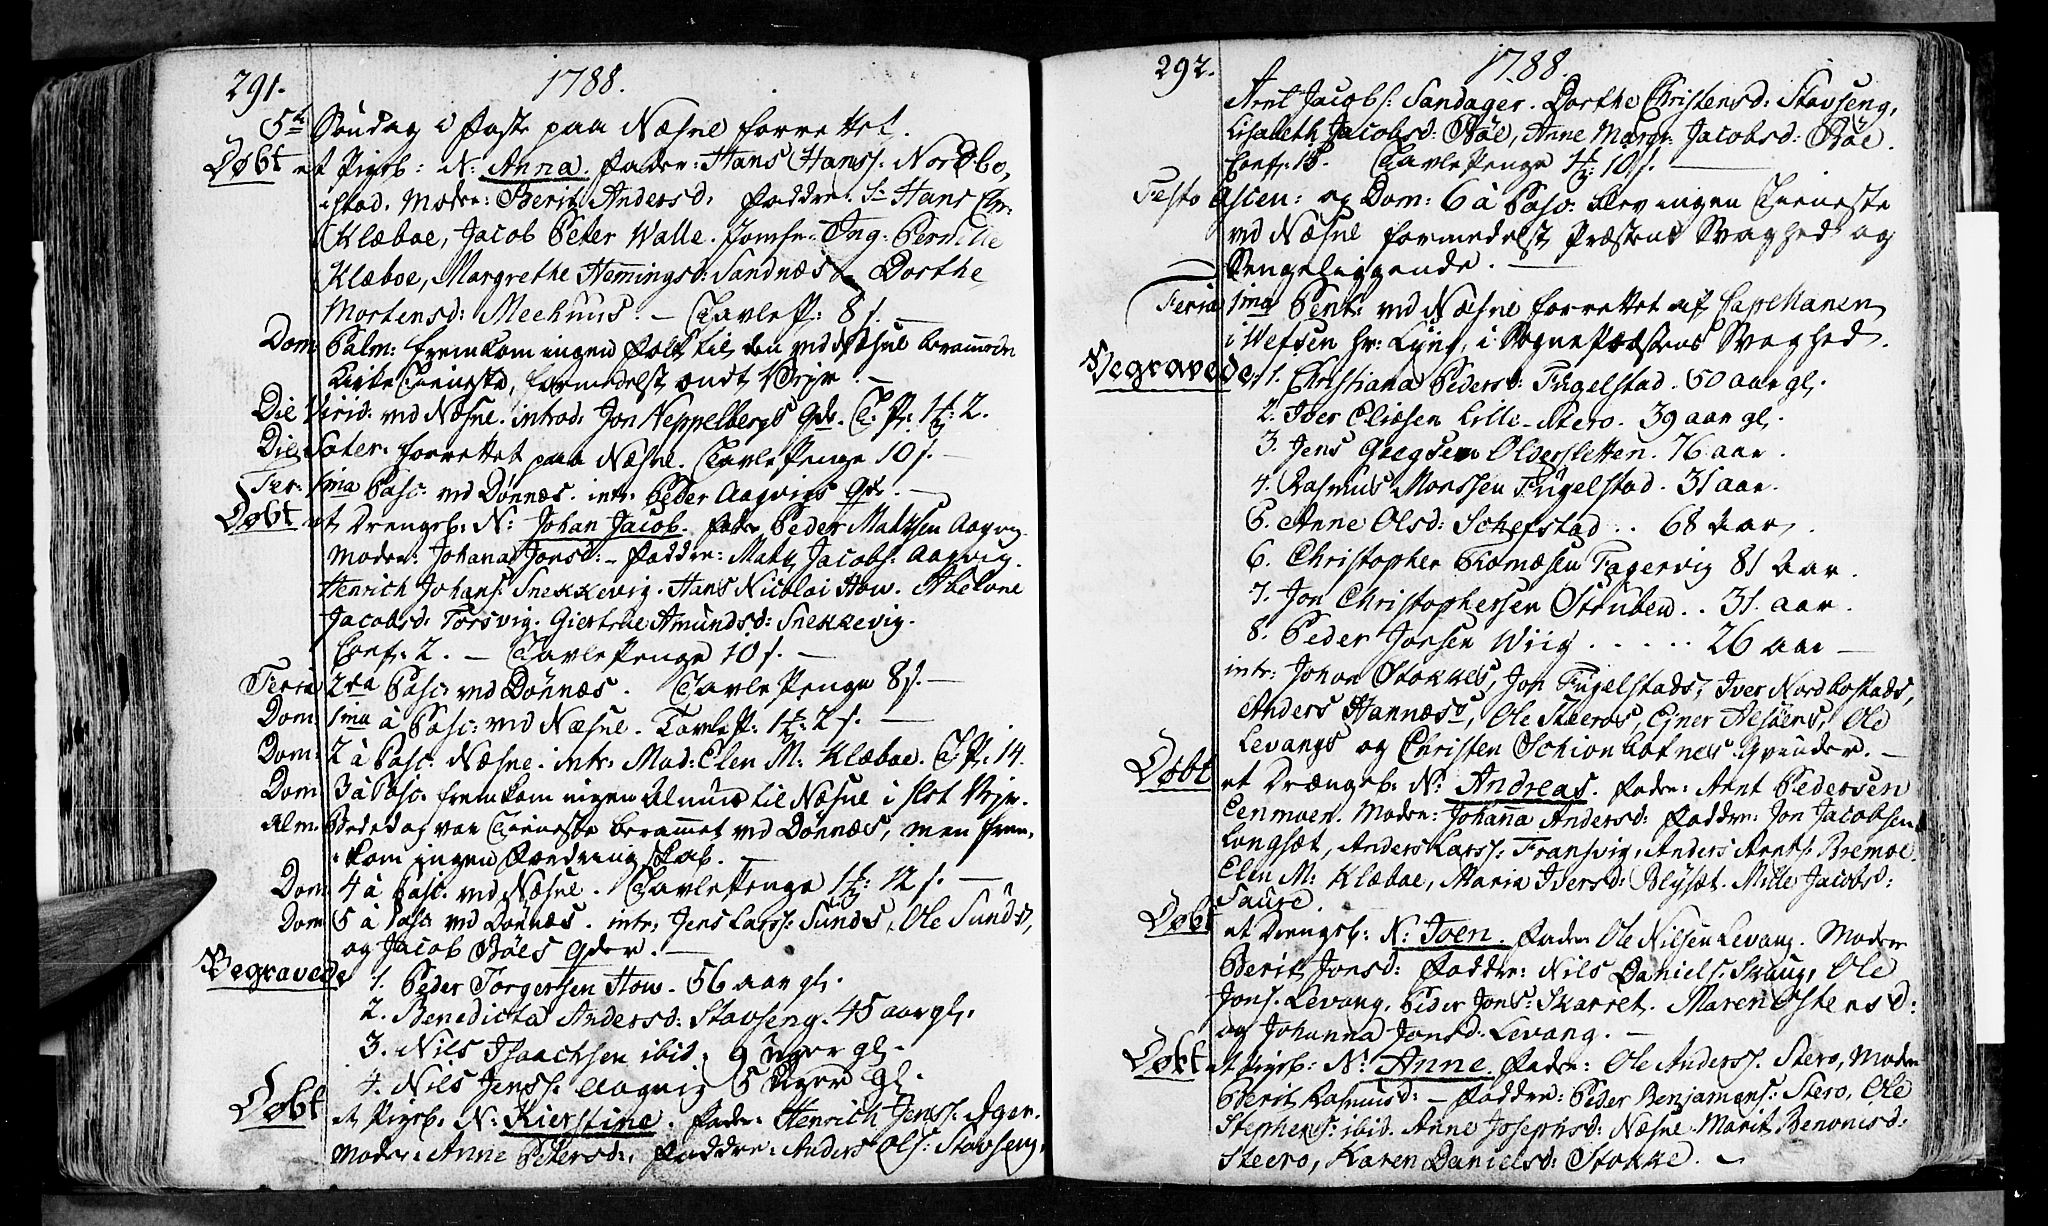 291. 1788.
5te Søndag i Faste paa Næsne forrettet.
Døbt et Pigeb: N: Anna. Fader: Hans Hans: Nordbo,
-stad. Moder: Berit Andersd: Faddre: Sr Hans
Klæboe, Jacob Peter Walle. Jomfr: Ing: Pernille
Klæboe, Margrethe Hemingsd: Sandnæs Dorthe
Mortensd: Meehuus. — Tavle P: 8 s. —
Dom: Palm: fremkom ingen Folk til den ved Næsne berammede
Kirke Tieneste, formedelst ondt Vejr. —
Die Virid: ved Næsne. introd: Jon Neppelbergs Qde. T. P. 1 ℔ 2.
Die Sater: forrettet paa Næsne. Tavle Penge 10 s. —
Fer: 1ma Pasc: ved Dønnæs. intr: Peder Aagvigs Qde. —
Døbt et Drengeb: N: Johan Jacob. Fader Peder Mathsen Aagvig
Moder: Johana Jonsd: — Faddre: Math Jacobs: Aagvig.
Henrich Johans: Snekkevig. Hans Nicolai How. Abelone
Jacobsd: Torsvig. Giertrue Amundsd: Snekkevig.
Conf: 2. — Tavle Penge 10 s. —
Feria 2da Pasc: ved Dønnæs. Tavle Penge 8 s. —
Dom: 1ma à Pasc: ved Næsne. Tavle P: 1 ℔: 2 s. —
Dom: 2 à Pasc: Næsne. intr: Mad: Elen M: Klæboe. T. P: 14.
Dom: 3 à Pasc: fremkom ingen Almue til Næsne i slet Vejr.
Alm: Bededag var Tieneste berammet ved Dønnæs, men frem-
-kom ingen
Dom: 4 à Pasc: ved Næsne. Tavle Penge 1 ℔: 12 s. —
Dom: 5 à Pasc: ved Dønnæs. intr: Jens Lars: Sunds, Ole Sunds,
og Jacob Bøes Qder. —
Begravede 1. Peder Torgersen How. 56 aar gl.
2. Benedicta Andersd: Stavseng. 45 aar gl.
3. Nils Isaachsen ibid: 9 Uger gl.
4. Nils Jens: Aagvig 5 Uger gl.
Døbt et Pigeb: N: Kierstine. Fader: Henrich Jens: Ager.
Moder: Anne Petersd: Faddre: Anders Ols: Stavseng,
292. 1788.
Arnt Jacobs: Sandager. Dorthe Christensd: Stavseng,
Lisabeth Jacobsd: Bøe, Anne Margr: Jacobsd: Bøe.
Conf: 15. Tavle Penge 1 ℔: 10 s. —
Festo Ascen: og Dom: 6 à Pasc: blev ingen Tieneste
ved Næsne formedelst Præstens Svaghed og
Sengeliggende. —
Feria 1ma Pent: ved Næsne forrettet af Capellanen
i Wefsen Hr: i Sogne Præstens Svaghed.
Begravede. 1. Christiana Pedersd: Fugelstad. 50 aar gl.
2. Iver Eliesen Lille-Stero. 39 aar gl.
3. Jens Olderskletten. 76 aar.
4. Rasmus Monssen Fugelstad. 31 aar.
5. Anne Olsd: Schefstad.. 68 Aar.
6. Christopher Thomæsen Fagervig 81 Aar.
7. Jon Christophersen Struben.. 31. aar.
8. Peder Jonsen Wiig ..... 26 aar —
intr: Johan Stokkes, Jon Fugelstads, Iver Nordbostads,
Anders Hannæss, Ole Steeros, Ejner Alsøens, Ole
Levangs og Christen Qvinder. —
Døbt et Drængeb: N: Andreas. Fader: Arnt Pedersen
Eenmoen. Moder: Johanna Andersd: Faddre: Jon Jacobsen
Langsæt, Anders Lars: Fransvig, Anders Arnts: Bremoe.
Elen M: Klæboe, Maria Iversd: Blysæt. Mille Jacobsd:
Saure.
Døbt et Drengeb: N: Joen. Fader Ole Nilsen Levang. Moder
Berit Jonsd: Faddre: Nils Daniels: Skaug, Ole
Jons: Levang, Peder Jons: Skarret. Maren Ostensd:
og Johanna Jonsd: Levang. —
Døbt et Pigeb: N: Anne. Fader: Ole Anders: Stero, Moder
Berit Rasmusd: — Faddre: Peder Benjamens: Stero, Ole
Stephens: ibid. Anne Josephsd: Næsne. Marit Benonisd:
Steero, Karen Danielsd: Stokke. —